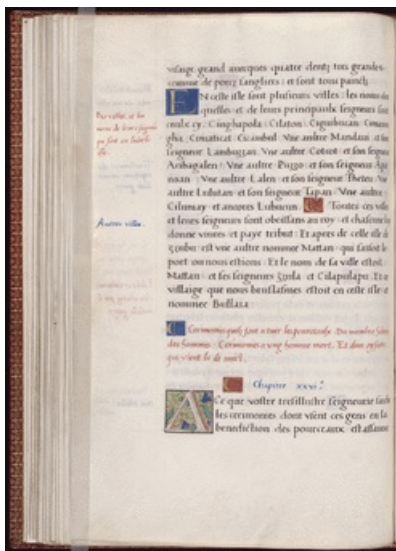 visaige grand avecques quatre dentz tous grandes
comme de porcz sangliers : et sont tous painctz
EN ceste isle sont plusieurs villes : les noms des
quelles et de leurs principaulx seigneurs sont
ceulx cy. Cinghapola : Cilaton : Ciguibucan Cimanin
gha : Cimaticat Cicambul Une aultre Mandani et son
seigneur Lambuzzan. Une aultre Cotcot : et son seigneur
Acibagalen : Une aultre Puzzo : et son seigneur
noan : Une aultre Lalen : et son seigneur Theteu Une
aultre Lulutan : et son seigneur Iapan Une aultre
Cilumay : et ancores Lubucun. Toutes ces villes
et leurs seigneurs sont obeissans au roy : et chascun luy
donne vivres : et paye tribut : Et apres de celle isle de
Zzubu est une aultre nommee Mattan : qui faisoit le
port ou nous estions. Et le nom de sa ville estoit
Mattan : et ses seigneurs Zzula et Cilapulapu. Et le
villaige que nous bruslasmes estoit en ceste isle et
nommee Bullaia
Des villes et les
noms de leurs seigneurs
qui sont en ladicte
isle.
Autres villes.
Cerimonies quilz font a tuer les pourceaulx. Du membre
des hommes. Cerimonies a ung homme mort. Et dun oyseau
qui vient de nuict.
Chapitre xxvi.
A Ce que vostre tresillustre seigneurie sache
les cerimonies dont usent ces gens en la
benediction des pourceaux est assavoir